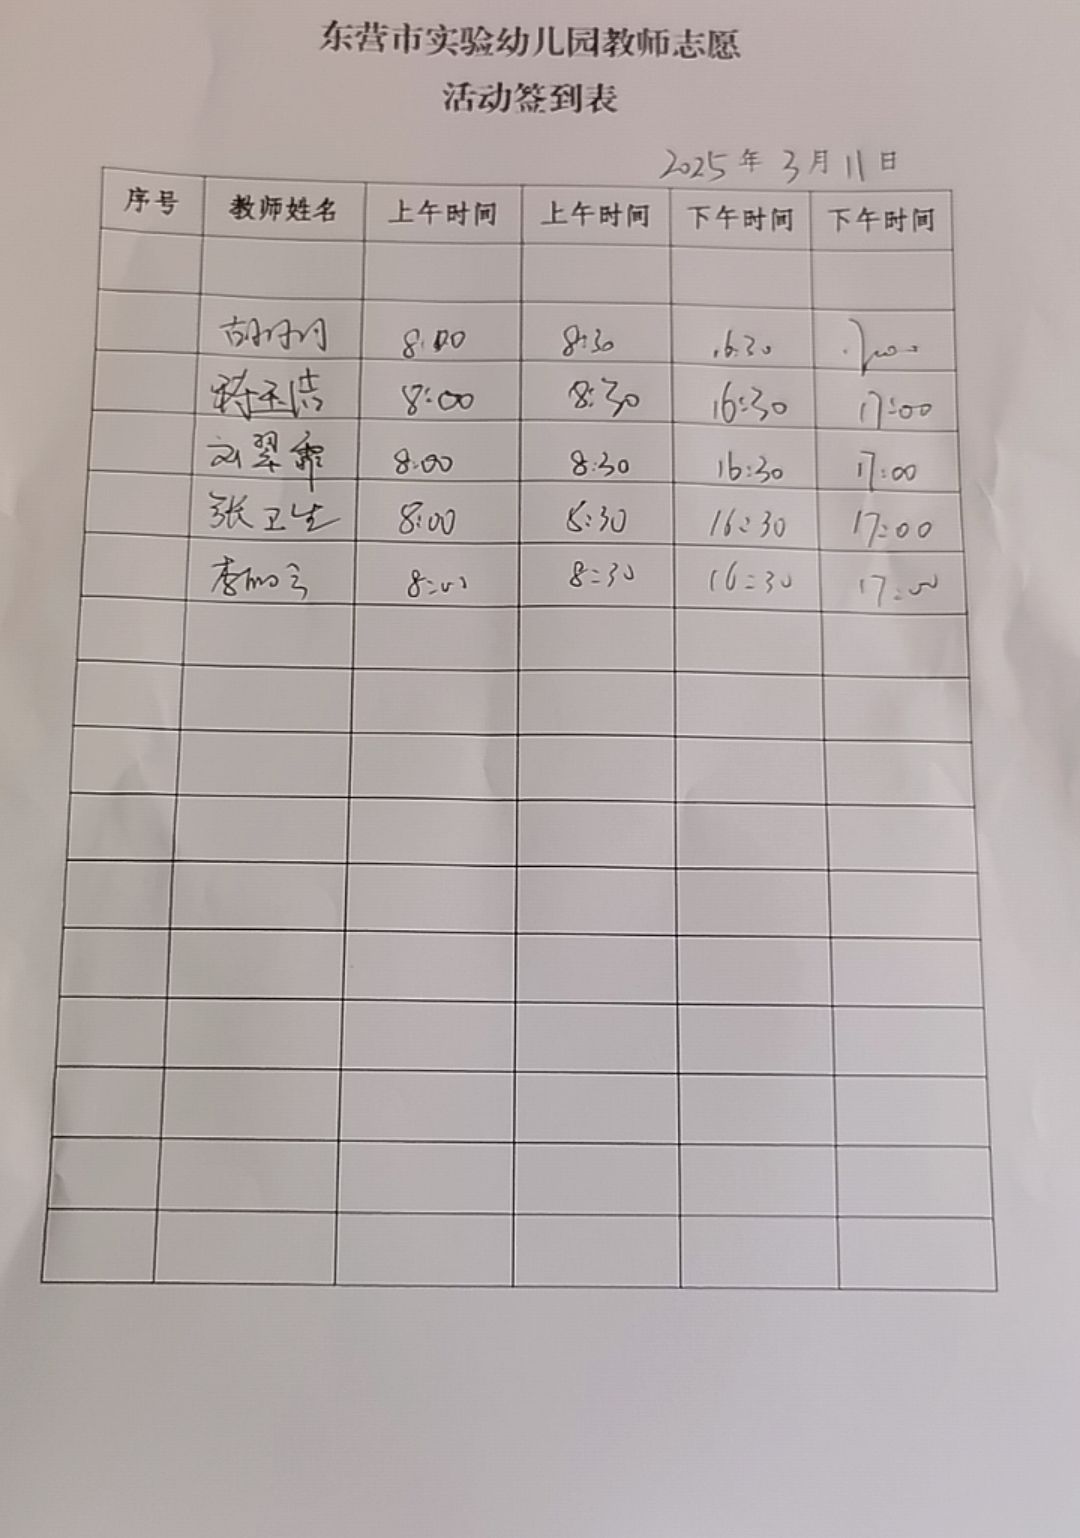 东营市实验幼儿园教师志愿
活动签到表
2025年3月11日
序号 教师姓名 上午时间 上午时间 下午时间 下午时间
8:00 8:30 16:30
8:00 8:30 16:30 17:00
刘翠霞 8:00 8:30 16:30 17:00
张卫生 8:00 8:30 16:30 17:00
8:00 8:30 16:30 17:00